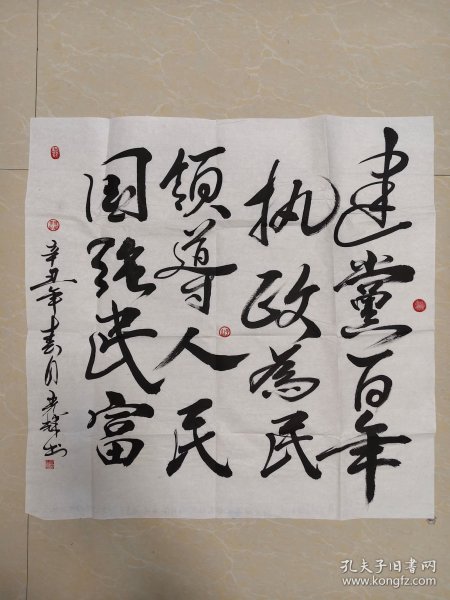 建黨百年
执政為民
领导人民
国强民富
辛丑年春月光辉书
孔夫子旧书网
www.kongfz.com